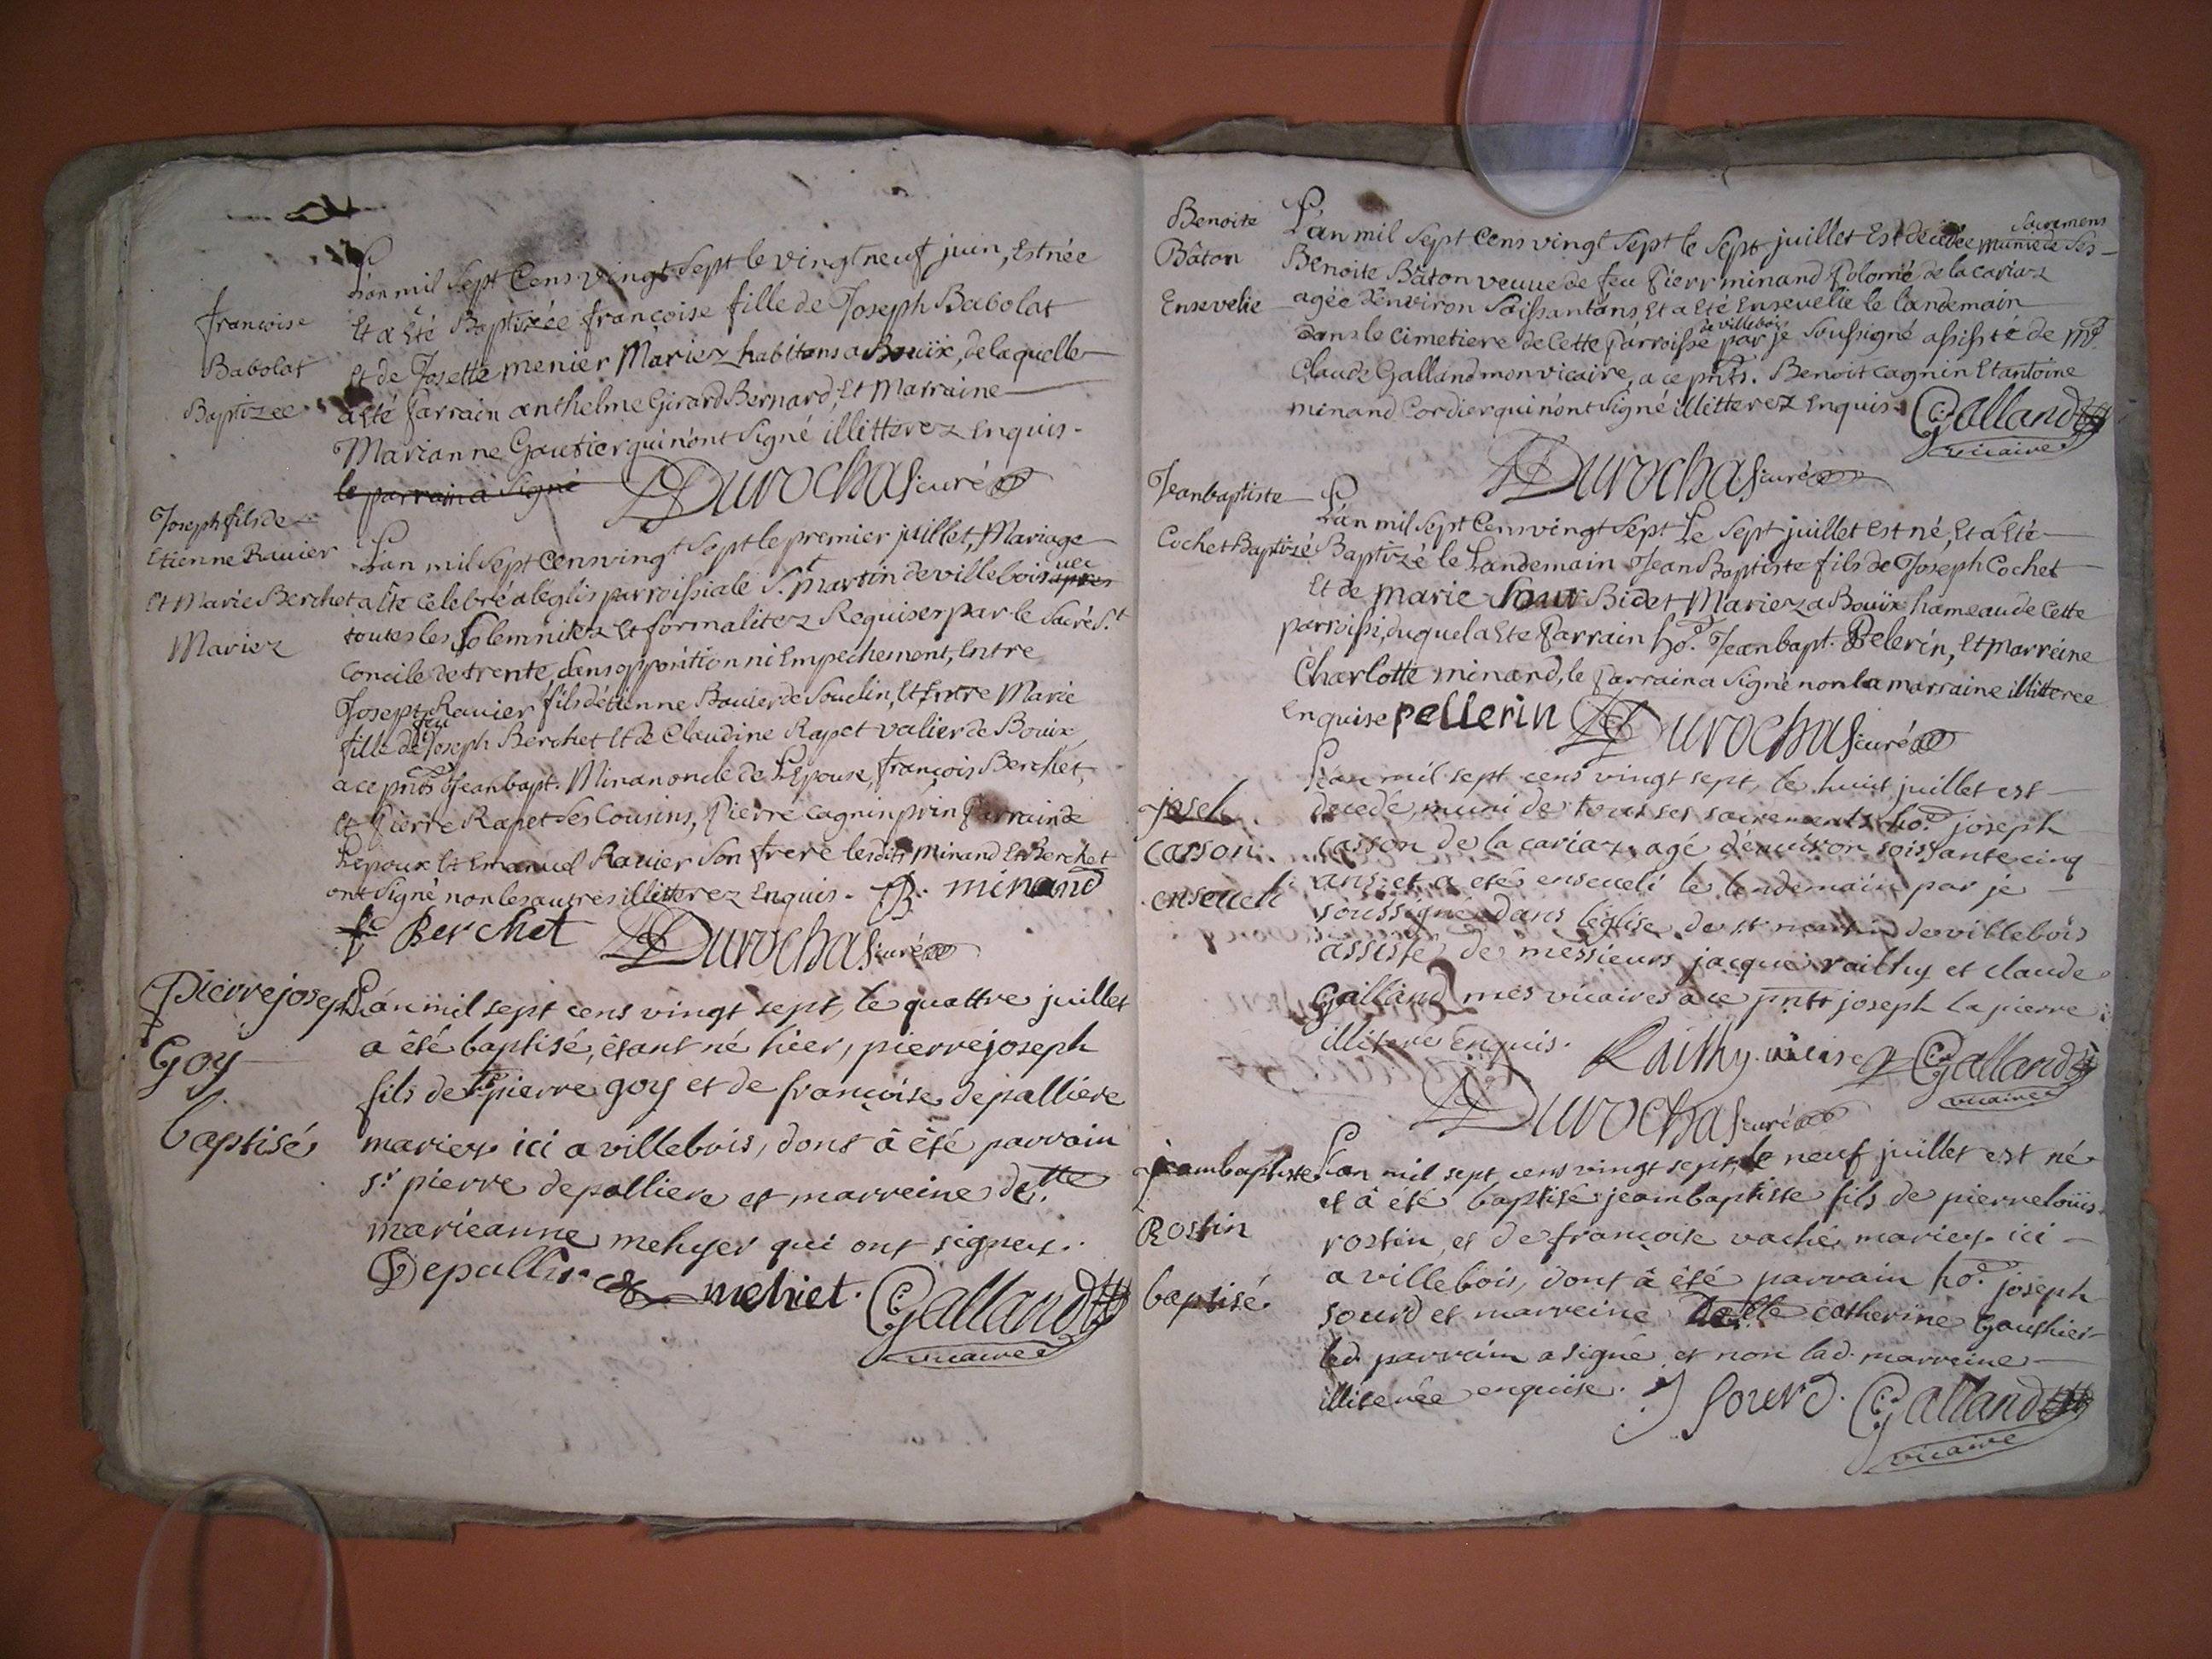 françoise
Babolat
Baptizee
L'an mil Sept Cens vingt Sept le vingt neuf juin, Est née
Et a Eté Baptizée françoise fille de Joseph Babolat
Et de Josette menier Mariez habitans a Bouix, de laquelle
a Eté Parrain anthelme Girard Bernard, Et Marraine
Marianne Gautier qui n'ont Signé illitterez Enquis.
le parrain a Signé Durochas curé
Joseph fils de
Etienne Ravier
Et Marie Berchet
Mariez
L'an mil Sept Cens vingt Sept le premier juillet, Mariage
a Eté Celebré a l'eglis parroissiale St. Martin de villebois avec
toutes les Solemnitez Et formalitez Requises par le Sacré St.
Concile de trente, Sans opposition ni Empechement, Entre
Joseph Ravier fils d'Etienne Ravier de Souclin, Et Entre Marie
fille de feu Joseph Berchet Et de Claudine Rapet valier de Bouix,
a ce pnts Jean bapt. Minan oncle de L'Epouse, françois Berchet,
Et Pierre Rapet Ses Cousins, Pierre Cagnin prin Parrain de
L'epoux Et Emanuel Ravier Son frere lesdits Minand Et Berchet
ont Signé non les autres illitterez Enquis. B. minand
fc Berchet Durochas curé
Pierre joseph
Goy
baptisé
L'an mil sept cens vingt sept, le quattre juillet
a été baptisé, étant né hier, pierre joseph
fils de pierre goy et de françoise depalliere
mariez ici a villebois, dont â été parrain
sr. pierre depalliere et marreine delle
marieanne mehyer qui ont signez.
Depalliere mehiet. Galland
vicaire
Benoite
Bâton
Ensevelie
L'an mil Sept Cens vingt Sept le Sept juillet Est decedée munie de Ses Sacremens
Benoite Bâton veuve de feu Pierr minand Polomé de la cariaz
agée d'environ Soissant ans, Et a Eté Ensevelie le landemain
dans le Cimetiere de Cette Parroisse de villebois par je Soussigné assisté de Mr.
Claude Galland mon vicaire, a ce pnts. Benoit cagnin Et antoine
minand Cordier qui n'ont Signé illitterez Enquis. Galland
vicaire
Durochas curé
Jean baptiste
Cochet Baptizé
L'an mil Sept Cens vingt Sept Le Sept juillet Est né, Et a Eté
Baptizé le Landemain Jean Baptiste fils de Joseph Cochet
Et de marie Bidet Mariez a Bouix hameau de Cette
parroissi, duquel a Eté Parrain ho. Jean bapt. Pelerin, Et marréine
Charlotte minard, le Parrain a Signé non la marraine illitteree
Enquise pellerin Durochas curé
joseh
casson
enseveli
L'an mil sept cens vingt sept, le huit juillet est
decedé, muni de tous ses sacrements ho. joseph
casson de la cariaz, agé d'environ soissante cinq
ans, et a eté enseveli le lendemain par je
soussigné dans l'eglise de st martin de villebois
assisté de messieurs jacque railhy et claude
Galland mes vicaires a ce pnts joseph la pierre
illiteres enquis. Railhy vicaire Galland
vicaire
Durochas curé
jeambaptiste
Rostin
baptisé
L'an mil sept cens vingt sept, le neuf juillet est né
et â eté baptisé jeambaptiste fils de pierre loüis
rostin et de françoise vaché mariez ici
a villebois, dont â été parrain ho. joseph
sourd et marreine catherine Gauthier
led. parrain a signé et non lad. marreine
illiterée enquise. J Sourd. Galland
vicaire